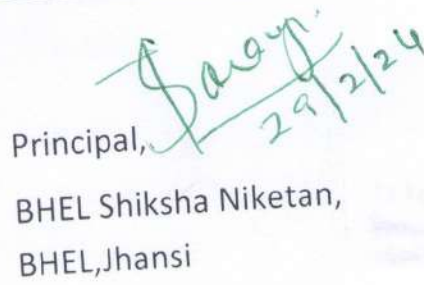 29/2/24
Principal,
BHEL Shiksha Niketan,
BHEL,Jhansi